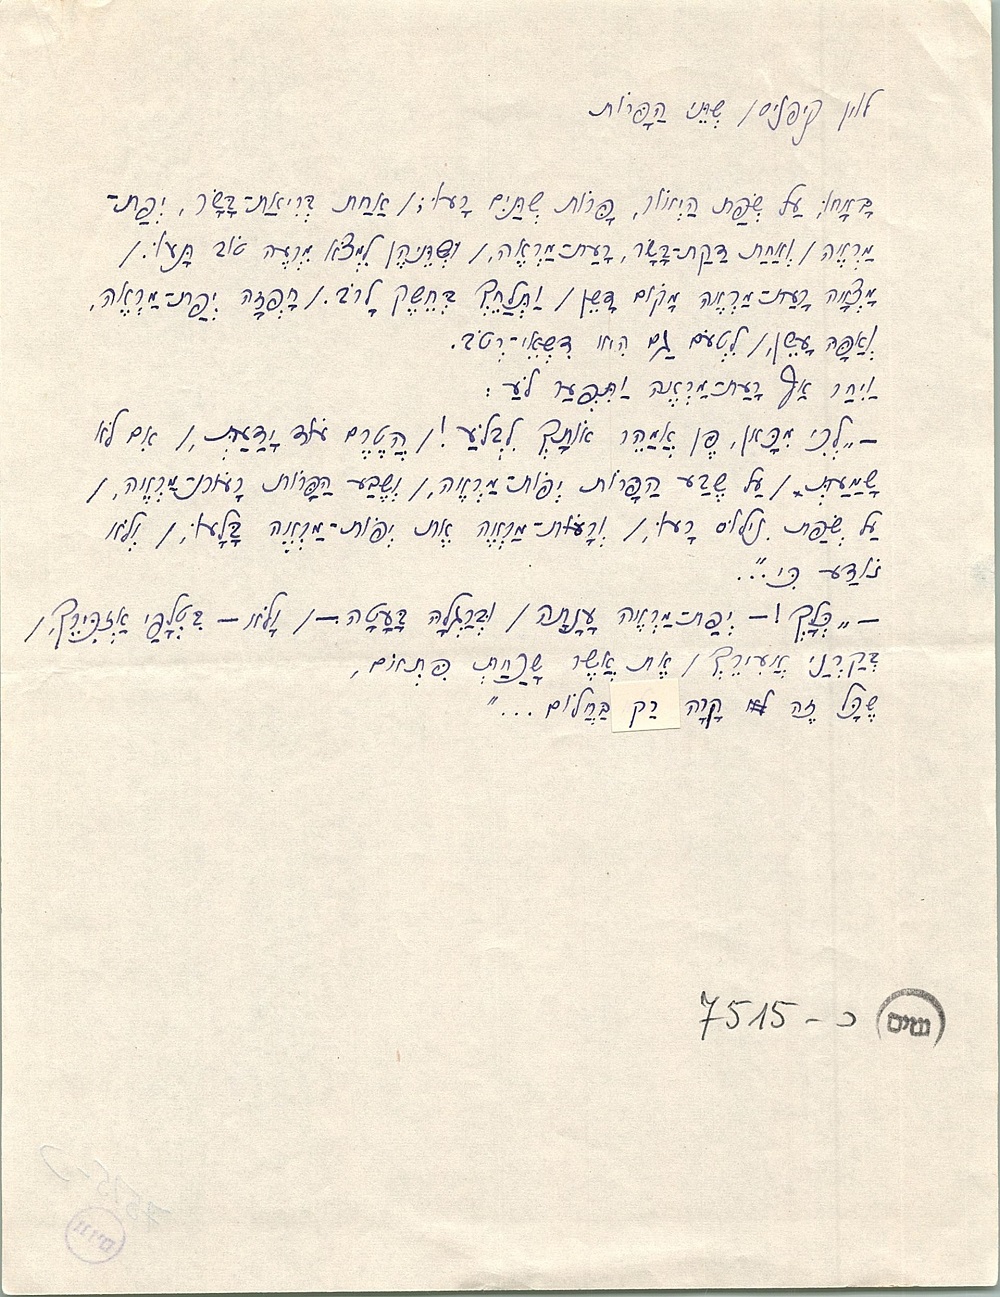 לוין קיפניס / שְׁתֵּי הַפָּרוֹת
בָּאָחוּ, עַל שְׂפַת הַיְאוֹר, פָּרוֹת שְׁתַּיִם רָעוּ; / אַחַת בְּרִיאַת-בָּשָׂר, יְפַת-
מַרְאֶה / וְאַחַת דַּקַּת-בָּשָׂר, רָעַת-מַרְאֶה, / וּשְׁתֵּיהֶן לִמְצֹא מִרְעֶה טוֹב תָּעוּ. /
מָצְאָה רָעַת-מַרְאֶה מָקוֹם דָּשֵׁן / וַתְּלַחֵךְ בְּחֵשֶׁק לָרֹב. / חָפְזָה יְפַת-מַרְאֶה,
וְאַפָּהּ עָשֵׁן, / לִטְעֹם גַּם הִיא דִּשְׁאֵי-רְטֹב.
וַיִּחַר אַף רָעַת-מַרְאֶה וַתִּפְעַר לֹעַ:
– „לְכִי מִכָּאן, פֶּן אֲמַהֵר אוֹתָךְ לִבְלֹעַ! / הֲטֶרֶם עוֹד יָדַעַתְּ, / אִם לֹא
שָׁמַעַתְּ, / עַל שֶׁבַע הַפָּרוֹת יְפוֹת-מַרְאֶה, / וְשֶׁבַע הַפָּרוֹת רָעוֹת-מַרְאֶה, /
עַל שְׂפַת נִילוּס רָעוּ, / וְרָעוֹת-מַרְאֶה אֶת יְפוֹת-מַרְאֶה בָּלְעוּ, / וְלֹא
נוֹדַע כִּי...”
– „כַּלֵּךְ! – יְפַת-מַרְאֶה עָנָתָה / וּבְרַגְלָהּ בָּעָטָה – / וָלֹא – בִּטְלָפַי אַזְכִּירֵךְ, /
בְּקַרְנַי אֲעִירֵךְ / אֶת אֲשֶׁר שָׁכַחַתְּ פִּתְאוֹם,
שֶׁכָּל זֶה קָרָה רַק בַּחֲלוֹם...”
כ – 7515